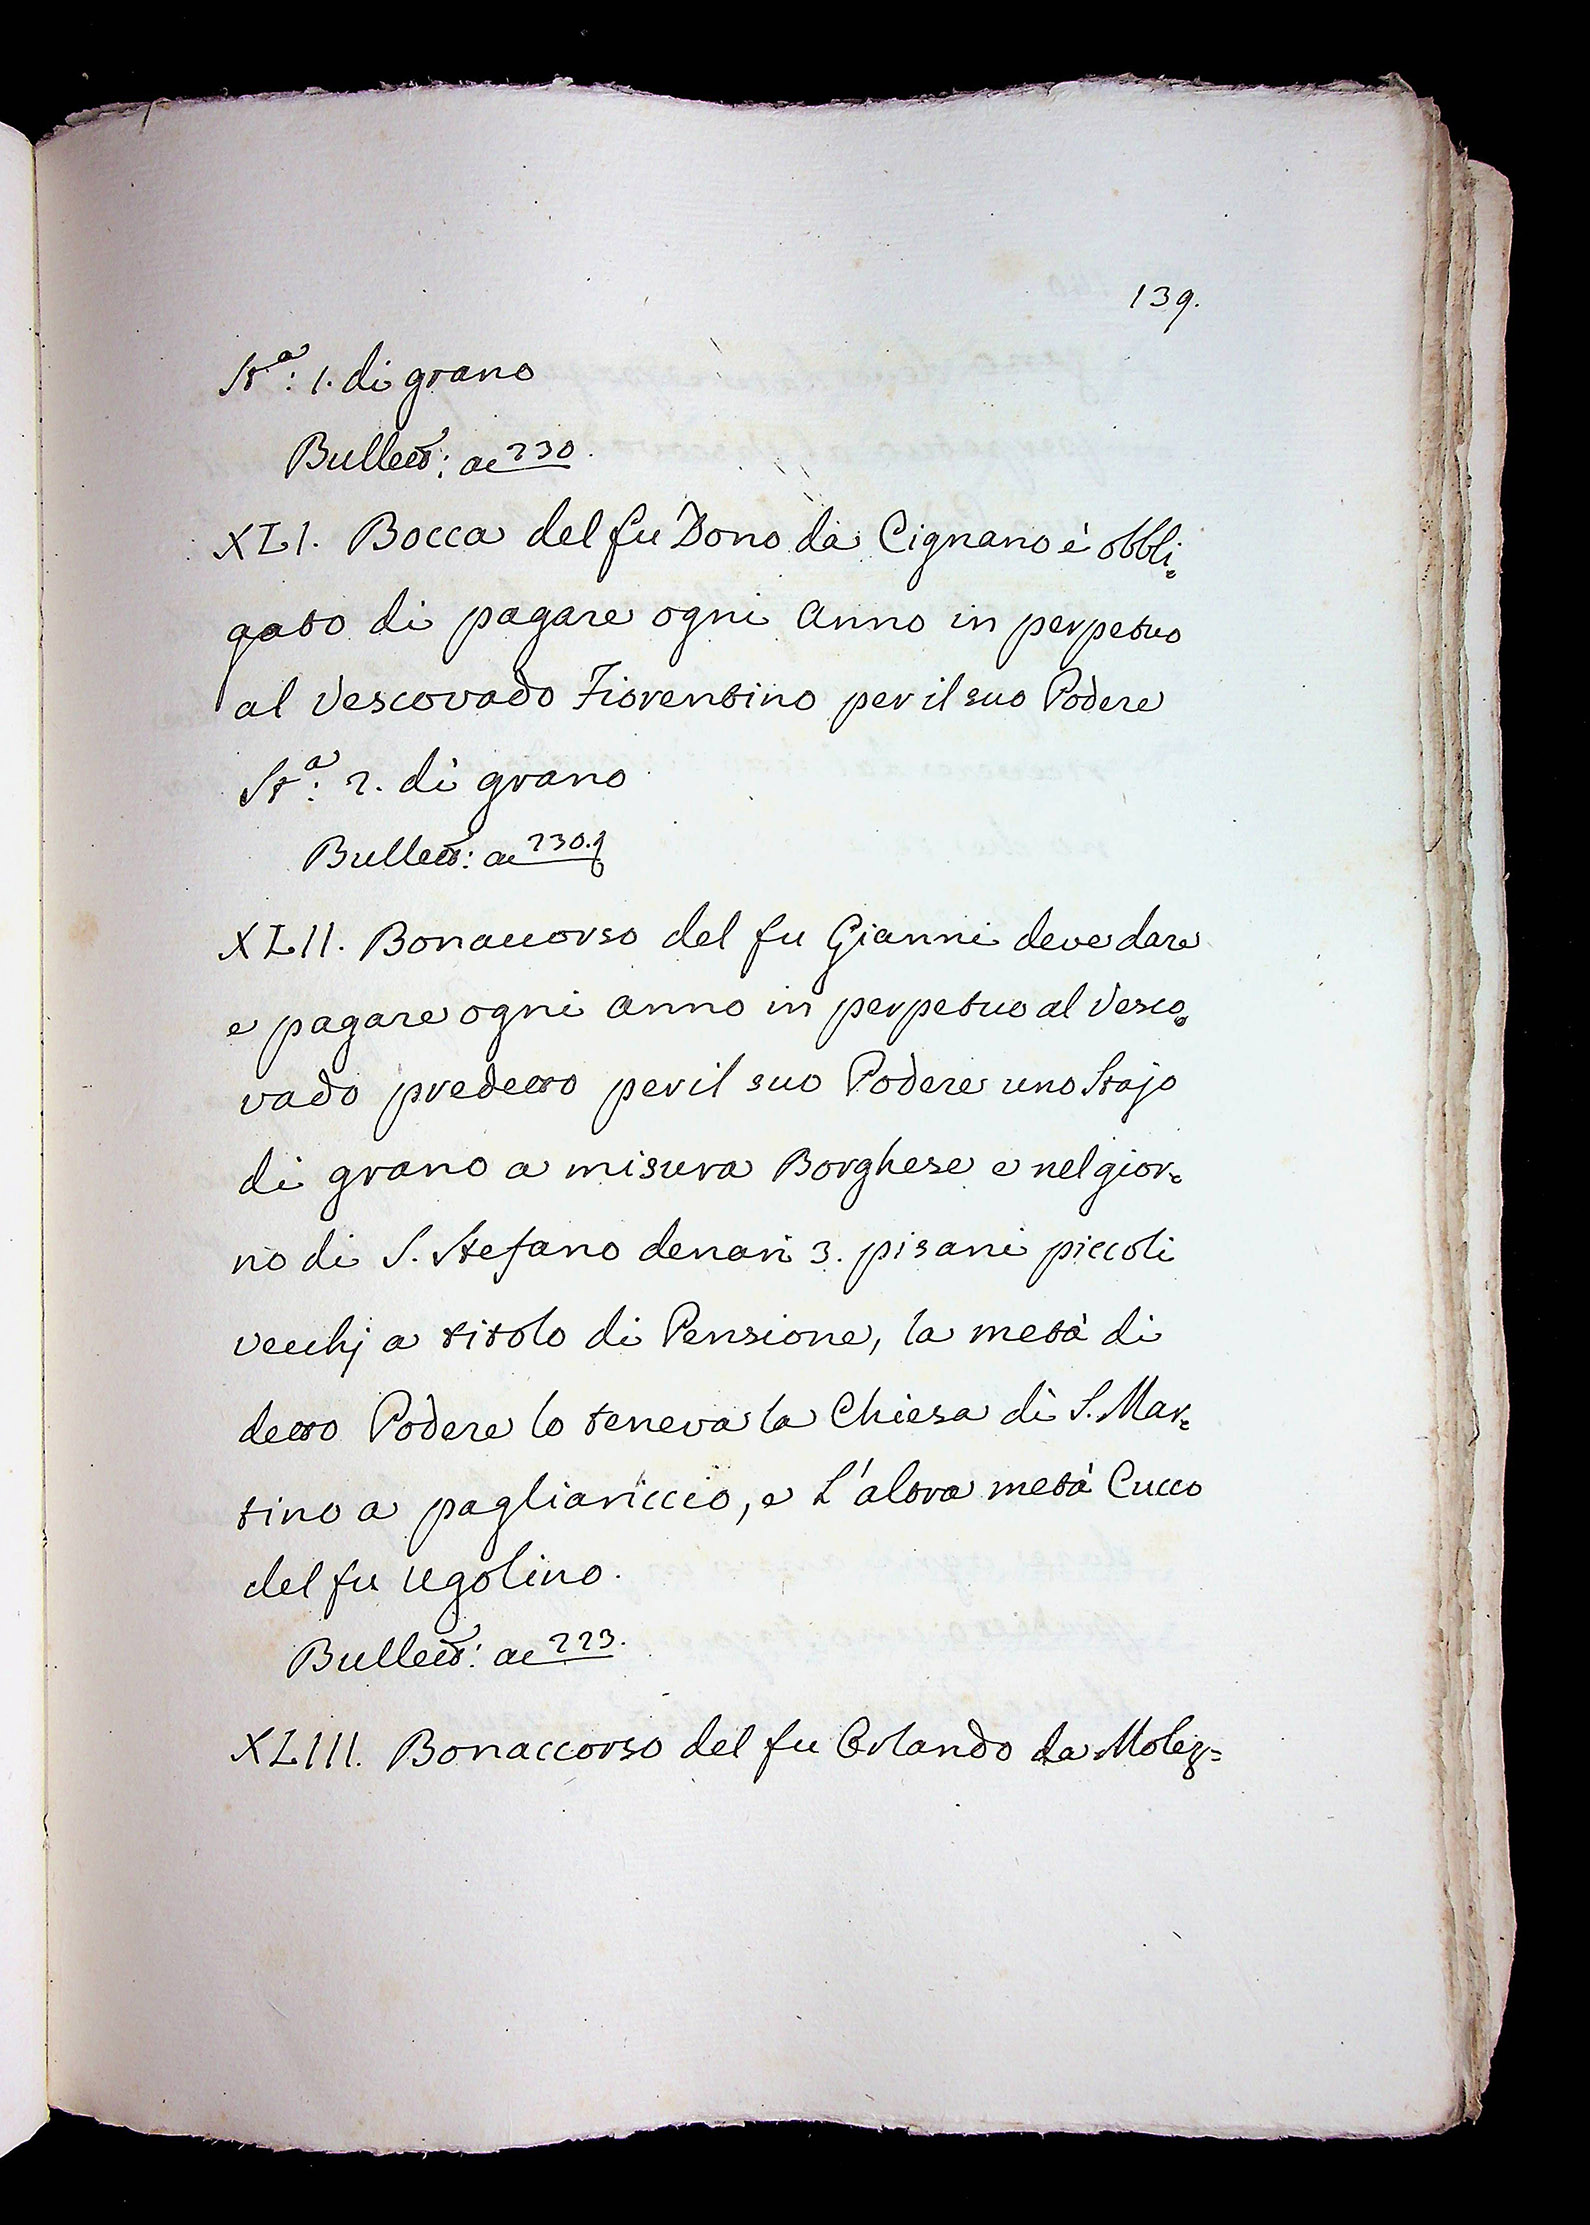 139.
Sta: 1. di grano
Bullett: ac 230.
XLI. Bocca del fu Dono da Cignano è obbli=
gato di pagare ogni Anno in perpetuo
al Vescovado Fiorentino per il suo Podere
Sta: 2. di grano
Bullett: ac 230.
XLII. Bonaccorso del fu Gianni deve dare
e pagare ogni Anno in perpetuo al Vesco=
vado predetto per il suo Podere uno Stajo
di grano a misura Borghese e nel gior=
no di S. Stefano denari 3. pisani piccoli
vecchj a titolo di Pensione, la metà di
detto Podere lo teneva la Chiesa di S. Mar=
tino a pagliariccio, e L'altra metà Cucco
del fu Ugolino.
Bullett: ac 223.
XLIII. Bonaccorso del fu Orlando da Molez=